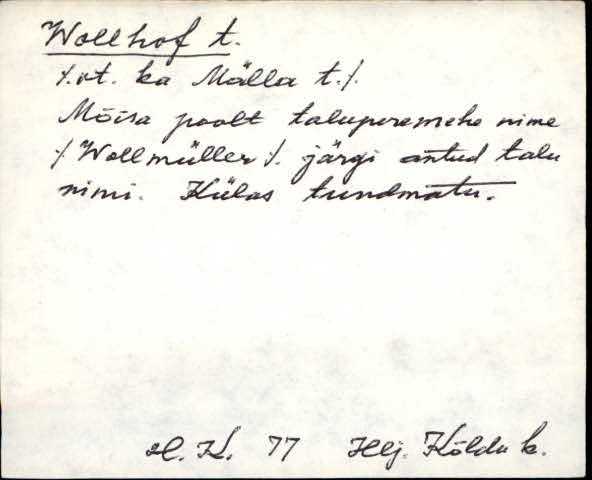 Wollhof t.
/.vt. ka Mälla t./.
Mõisa poolt taluperemehe nime
/Wollmüller/. järgi antud talu
nimi. Külas tundmatu.
H. K. 77 Hlj. Kõldu k.